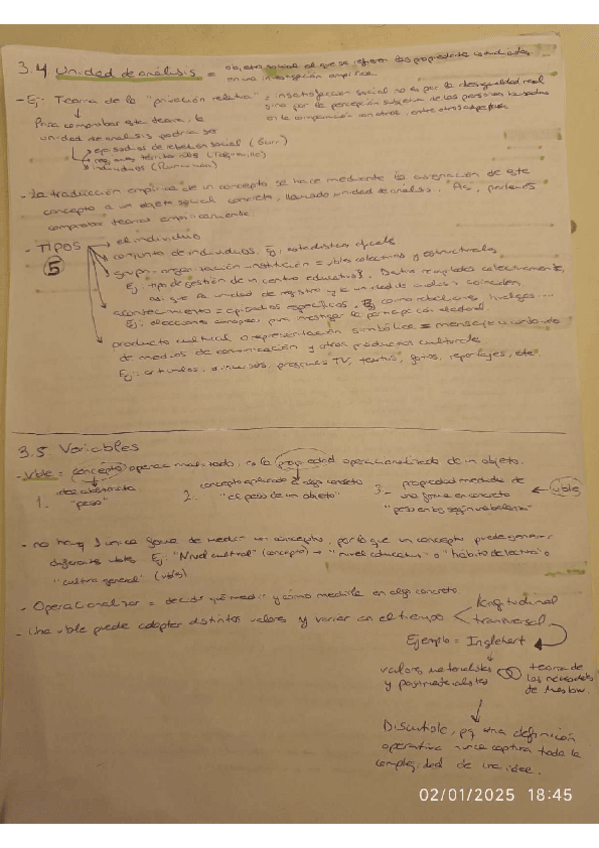 3.4 Unidad de análisis = objeto social al que se refieren las propiedades estudiadas
en una investigación empírica.
- Ej: Teoría de la "privación relativa" = insatisfacción social no es por la desigualdad real
sino por la percepción subjetiva de las personas basadas
en la comparación con otros, entre otros aspectos
Para comprobar esta teoría, la
unidad de análisis podría ser
episodios de rebelión social (Gurr)
regiones territoriales
individuos (Runciman)
- La traducción empírica de un concepto se hace mediante la asignación de este
concepto a un objeto social concreto, llamado unidad de análisis. Así, podemos
comprobar teorías empíricamente
- TIPOS
5
el individuo
conjunto de individuos. Ej: estadísticas oficiales
grupo-organización institución = vbles colectivas y estructurales
Ej: tipo de gestión de un centro educativo. Datos recopilados colectivamente,
así que la unidad de registro y la unidad de análisis coinciden.
acontecimiento = episodios específicos. Ej como rebeliones, huelgas...
Ej: elecciones europeas para investigar la percepción electoral
producto cultural o representación simbólica = mensaje
de medios de comunicación y otros productos culturales
Ej: artículos, discursos, programas TV, textos, fotos, reportajes, etc
3.5. Variables
- Vble = concepto operacionalizado, es la propiedad operacionalizada de un objeto.
1. idea abstracta
"peso"
2. concepto aplicado a algo concreto
"el peso de un objeto"
3. propiedad medida de
una forma en concreto
"peso en kg según una balanza"
← vble
- no hay 1 única forma de medir un concepto, por lo que un concepto puede generar
diferentes vbles Ej: "Nivel cultural" (concepto) → "nivel educativo" o "hábito de lectura" o
"cultura general" (vbles)
- Operacionalizar = decidir qué medir y cómo medirlo en algo concreto.
- Una vble puede adoptar distintos valores y variar en el tiempo
longitudinal
transversal
Ejemplo = Inglehart
valores materialistas
y postmaterialistas
teoría de
las necesidades
de Maslow.
Discutible, pq una definición
operativa nunca captura toda la
complejidad de una idea.
02/01/2025 18:45